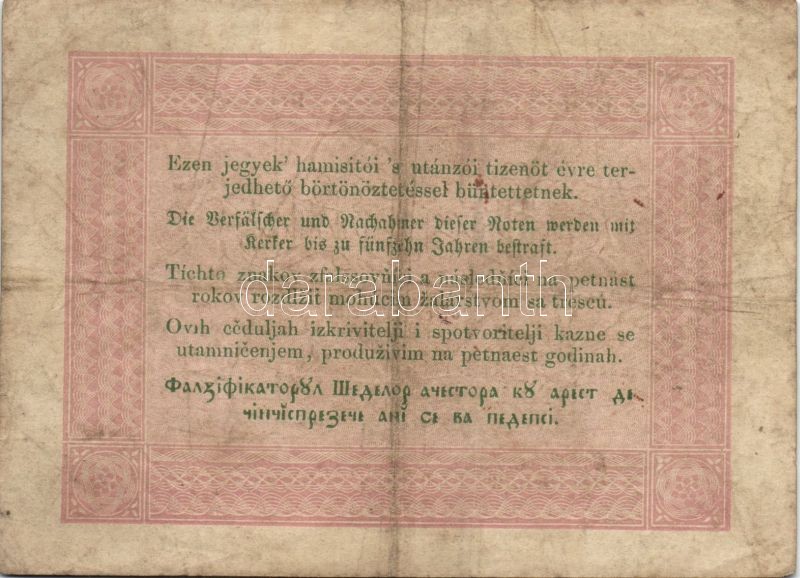 Ezen jegyek' hamisitói 's utánzói tizenöt évre ter-
jedhető börtönöztetéssel büntettetnek.
Die Verfälscher und Nachahmer dieser Noten werden mit
Kerker bis zu fünfzehn Jahren bestraft.
Tíchto znakov zfalšovňíci a následňíci na petnást
rokov rozdlžiť mohúcím žalárstvom sa trescú.
darabanth
Ovih cěduljah izkrivitelji i spotvoritelji kazne se
utamničenjem, produživim na pětnaest godinah.
Фалꙁіфікаторꙋл Шеделор ачестора кꙋ арест де
чінчіспреꙁече ані се ва педепсі.